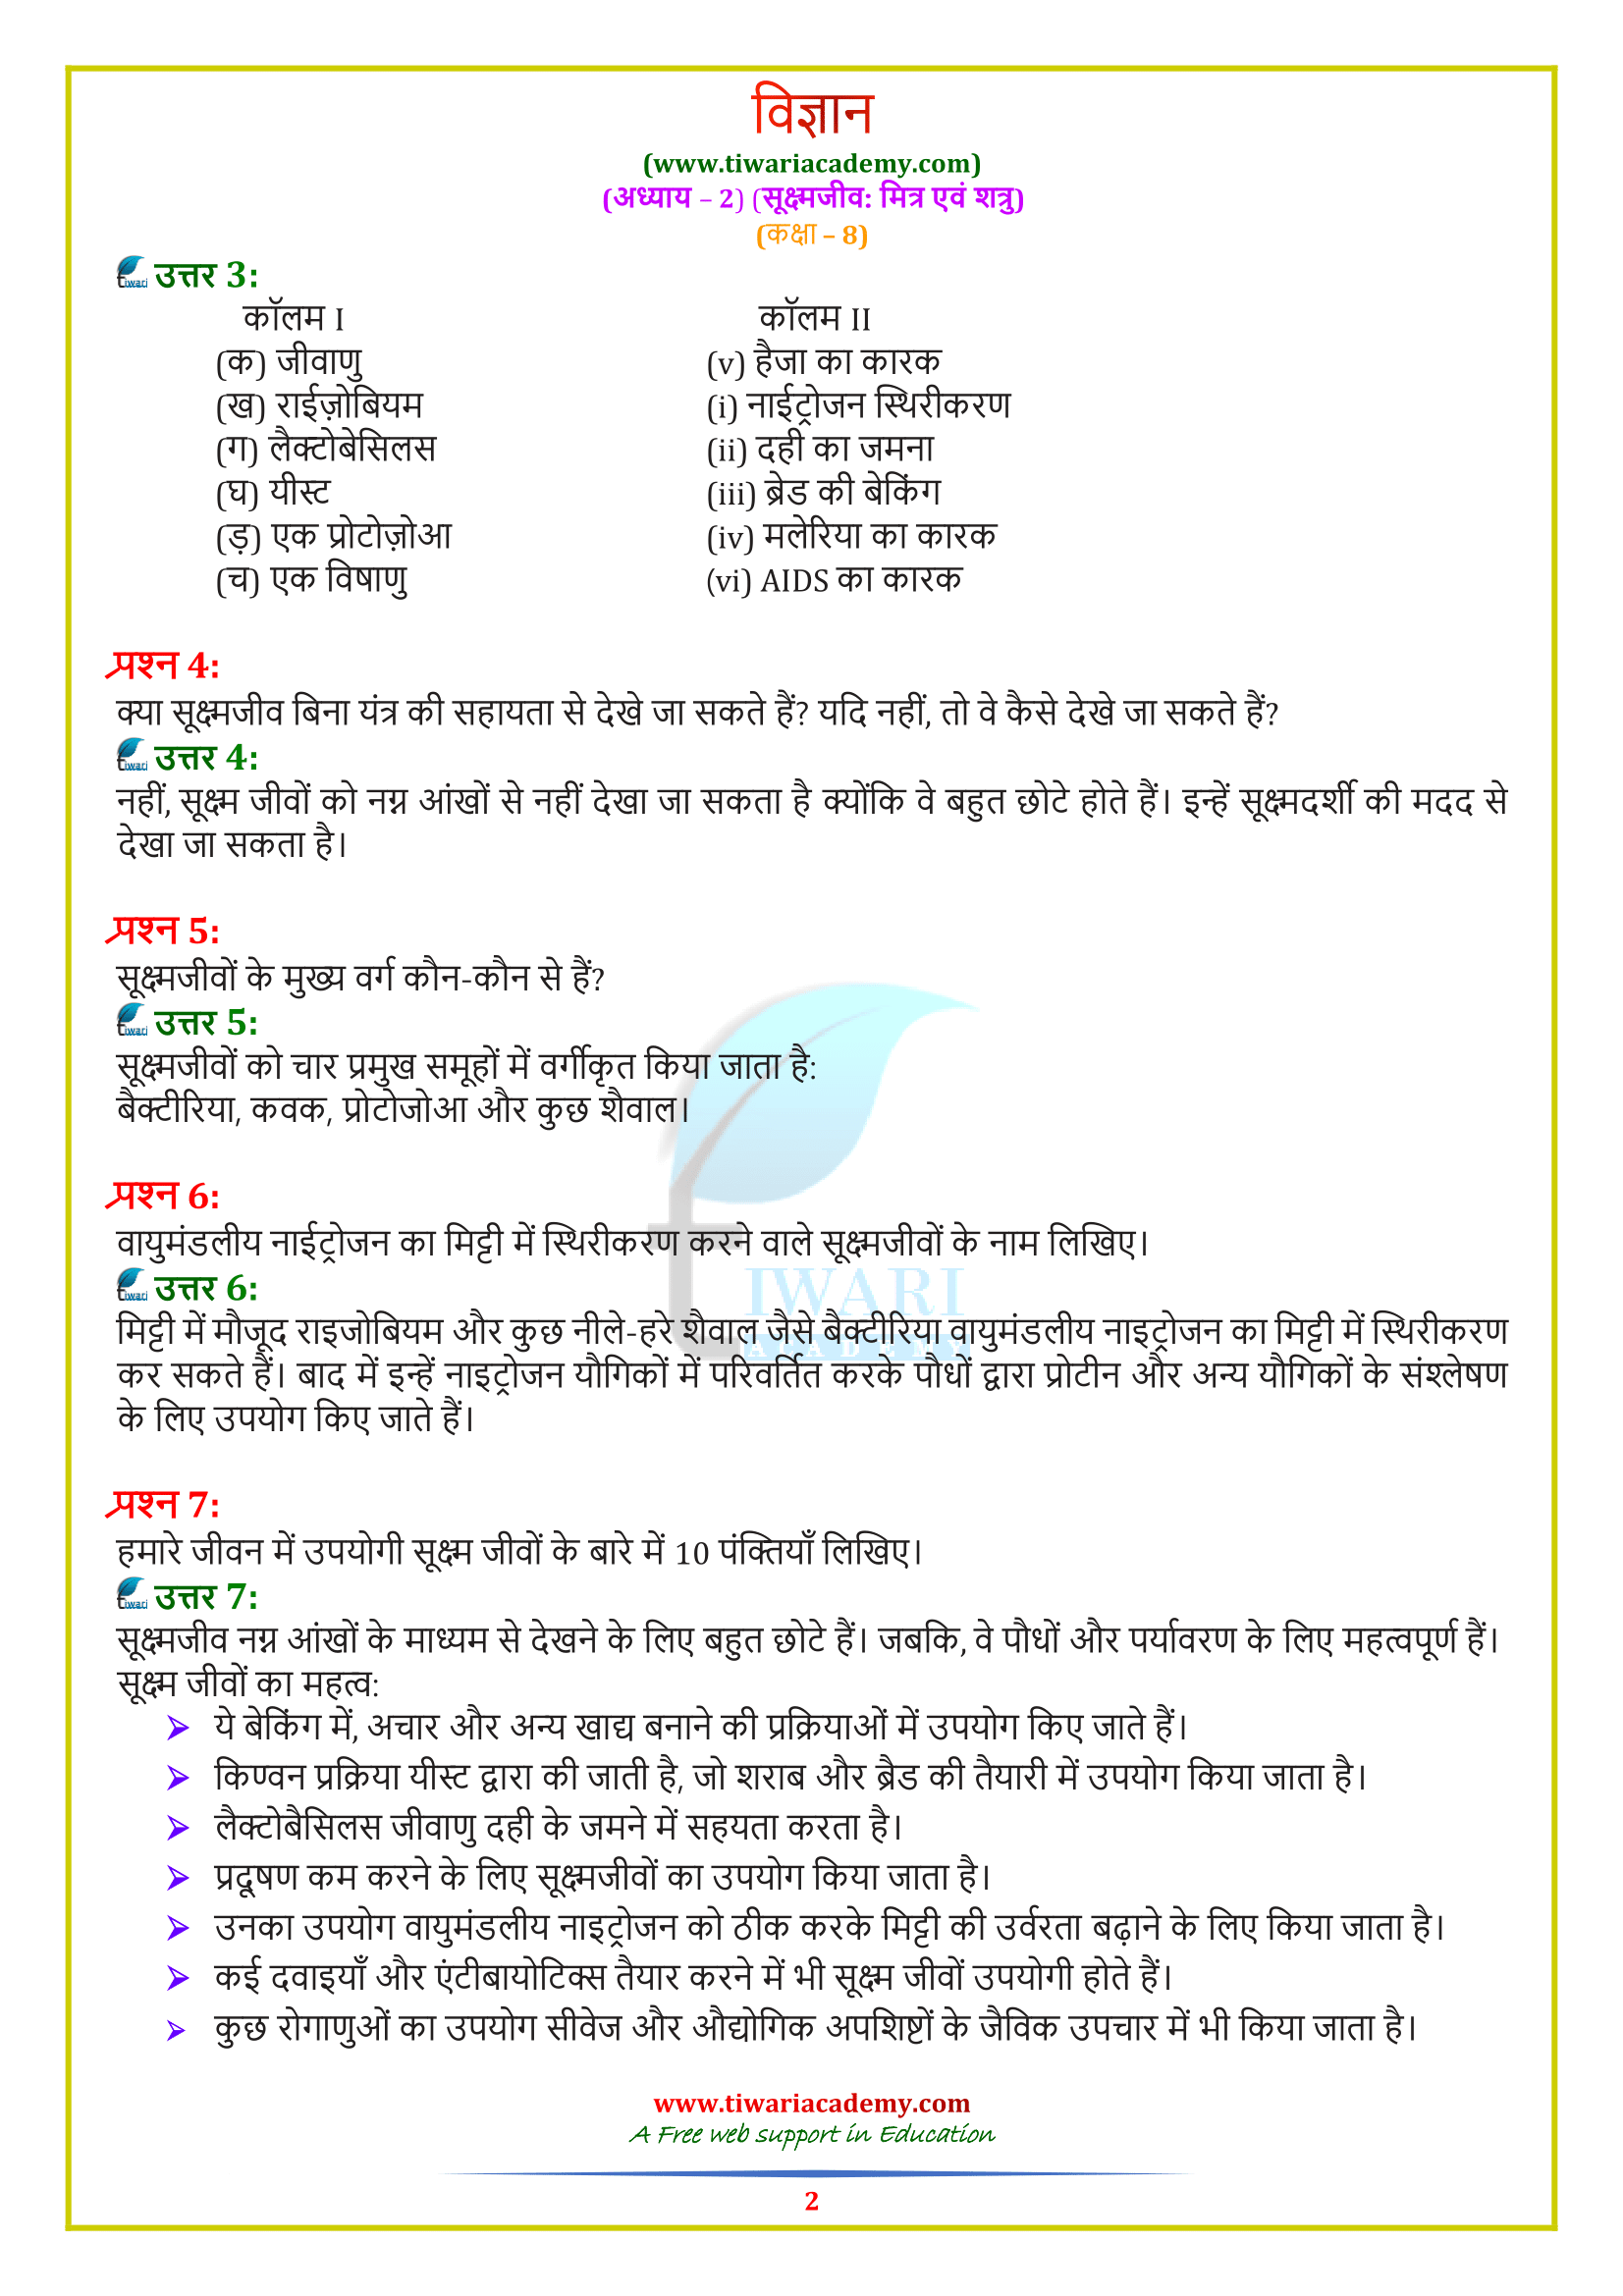 विज्ञान
(www.tiwariacademy.com)
(अध्याय – 2) (सूक्ष्मजीव: मित्र एवं शत्रु)
(कक्षा – 8)
iwari उत्तर 3:
कॉलम I कॉलम II
(क) जीवाणु (v) हैजा का कारक
(ख) राईज़ोबियम (i) नाईट्रोजन स्थिरीकरण
(ग) लैक्टोबेसिलस (ii) दही का जमना
(घ) यीस्ट (iii) ब्रेड की बेकिंग
(ड़) एक प्रोटोज़ोआ (iv) मलेरिया का कारक
(च) एक विषाणु (vi) AIDS का कारक
प्रश्न 4:
क्या सूक्ष्मजीव बिना यंत्र की सहायता से देखे जा सकते हैं? यदि नहीं, तो वे कैसे देखे जा सकते हैं?
iwari उत्तर 4:
नहीं, सूक्ष्म जीवों को नग्न आंखों से नहीं देखा जा सकता है क्योंकि वे बहुत छोटे होते हैं। इन्हें सूक्ष्मदर्शी की मदद से
देखा जा सकता है।
प्रश्न 5:
सूक्ष्मजीवों के मुख्य वर्ग कौन-कौन से हैं?
iwari उत्तर 5:
सूक्ष्मजीवों को चार प्रमुख समूहों में वर्गीकृत किया जाता है:
बैक्टीरिया, कवक, प्रोटोजोआ और कुछ शैवाल।
प्रश्न 6:
वायुमंडलीय नाईट्रोजन का मिट्टी में स्थिरीकरण करने वाले सूक्ष्मजीवों के नाम लिखिए।
iwari उत्तर 6:
IWARI
मिट्टी में मौजूद राइजोबियम और कुछ नीले-हरे शैवाल जैसे बैक्टीरिया वायुमंडलीय नाइट्रोजन का मिट्टी में स्थिरीकरण
ACADEMY
कर सकते हैं। बाद में इन्हें नाइट्रोजन यौगिकों में परिवर्तित करके पौधों द्वारा प्रोटीन और अन्य यौगिकों के संश्लेषण
के लिए उपयोग किए जाते हैं।
प्रश्न 7:
हमारे जीवन में उपयोगी सूक्ष्म जीवों के बारे में 10 पंक्तियाँ लिखिए।
iwari उत्तर 7:
सूक्ष्मजीव नग्न आंखों के माध्यम से देखने के लिए बहुत छोटे हैं। जबकि, वे पौधों और पर्यावरण के लिए महत्वपूर्ण हैं।
सूक्ष्म जीवों का महत्व:
➢ ये बेकिंग में, अचार और अन्य खाद्य बनाने की प्रक्रियाओं में उपयोग किए जाते हैं।
➢ किण्वन प्रक्रिया यीस्ट द्वारा की जाती है, जो शराब और ब्रैड की तैयारी में उपयोग किया जाता है।
➢ लैक्टोबैसिलस जीवाणु दही के जमने में सहयता करता है।
➢ प्रदूषण कम करने के लिए सूक्ष्मजीवों का उपयोग किया जाता है।
➢ उनका उपयोग वायुमंडलीय नाइट्रोजन को ठीक करके मिट्टी की उर्वरता बढ़ाने के लिए किया जाता है।
➢ कई दवाइयाँ और एंटीबायोटिक्स तैयार करने में भी सूक्ष्म जीवों उपयोगी होते हैं।
➢ कुछ रोगाणुओं का उपयोग सीवेज और औद्योगिक अपशिष्टों के जैविक उपचार में भी किया जाता है।
www.tiwariacademy.com
A Free web support in Education
2